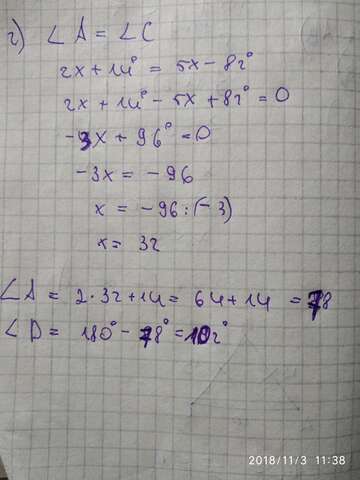 г) ∠A = ∠C
2x + 14° = 5x - 82°
2x + 14° - 5x + 82° = 0
-3x + 96° = 0
-3x = -96
x = -96:(-3)
x = 32
∠A = 2·32+14 = 64+14 = 78
∠D = 180° - 78° = 102°
2018/11/3 11:38